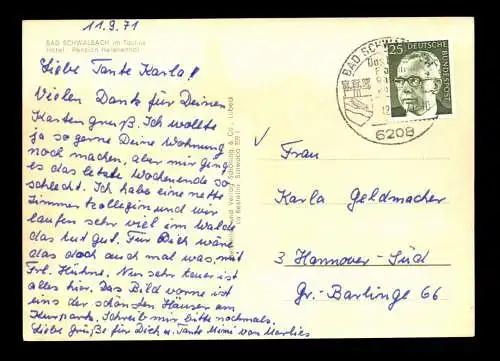 11.9.71
BAD SCHWALBACH im Taunus
Hotel - Pension Helenenthal
Liebe Tante Karla!
Vielen Dank für Deinen
Kartengruß. Ich wollte
ja so gerne Deine Wohnung
noch machen, aber mir ging
es das letzte Wochenende so
schlecht. Ich habe eine nette
Zimmerkollegin und wir
laufen sehr viel im Walde
das tut gut. Für Dich wäre
das doch auch mal was, mit
Frl. Hühne. Nun sehr teuer ist
alles hier. Das Bild vorne ist
eins der schönsten Häuser am
Kurpark. Schreib mir bitte nochmals.
Liebe Grüße für Dich u. Tante Mimi von Marlies
und Verlag Schöning & Co., Lübeck
BAD SCHWALBACH
6208
25
DEUTSCHE
BUNDESPOST
Frau
Karla Geldmacher
3 Hannover-Süd
Gr.-Barlinge 66